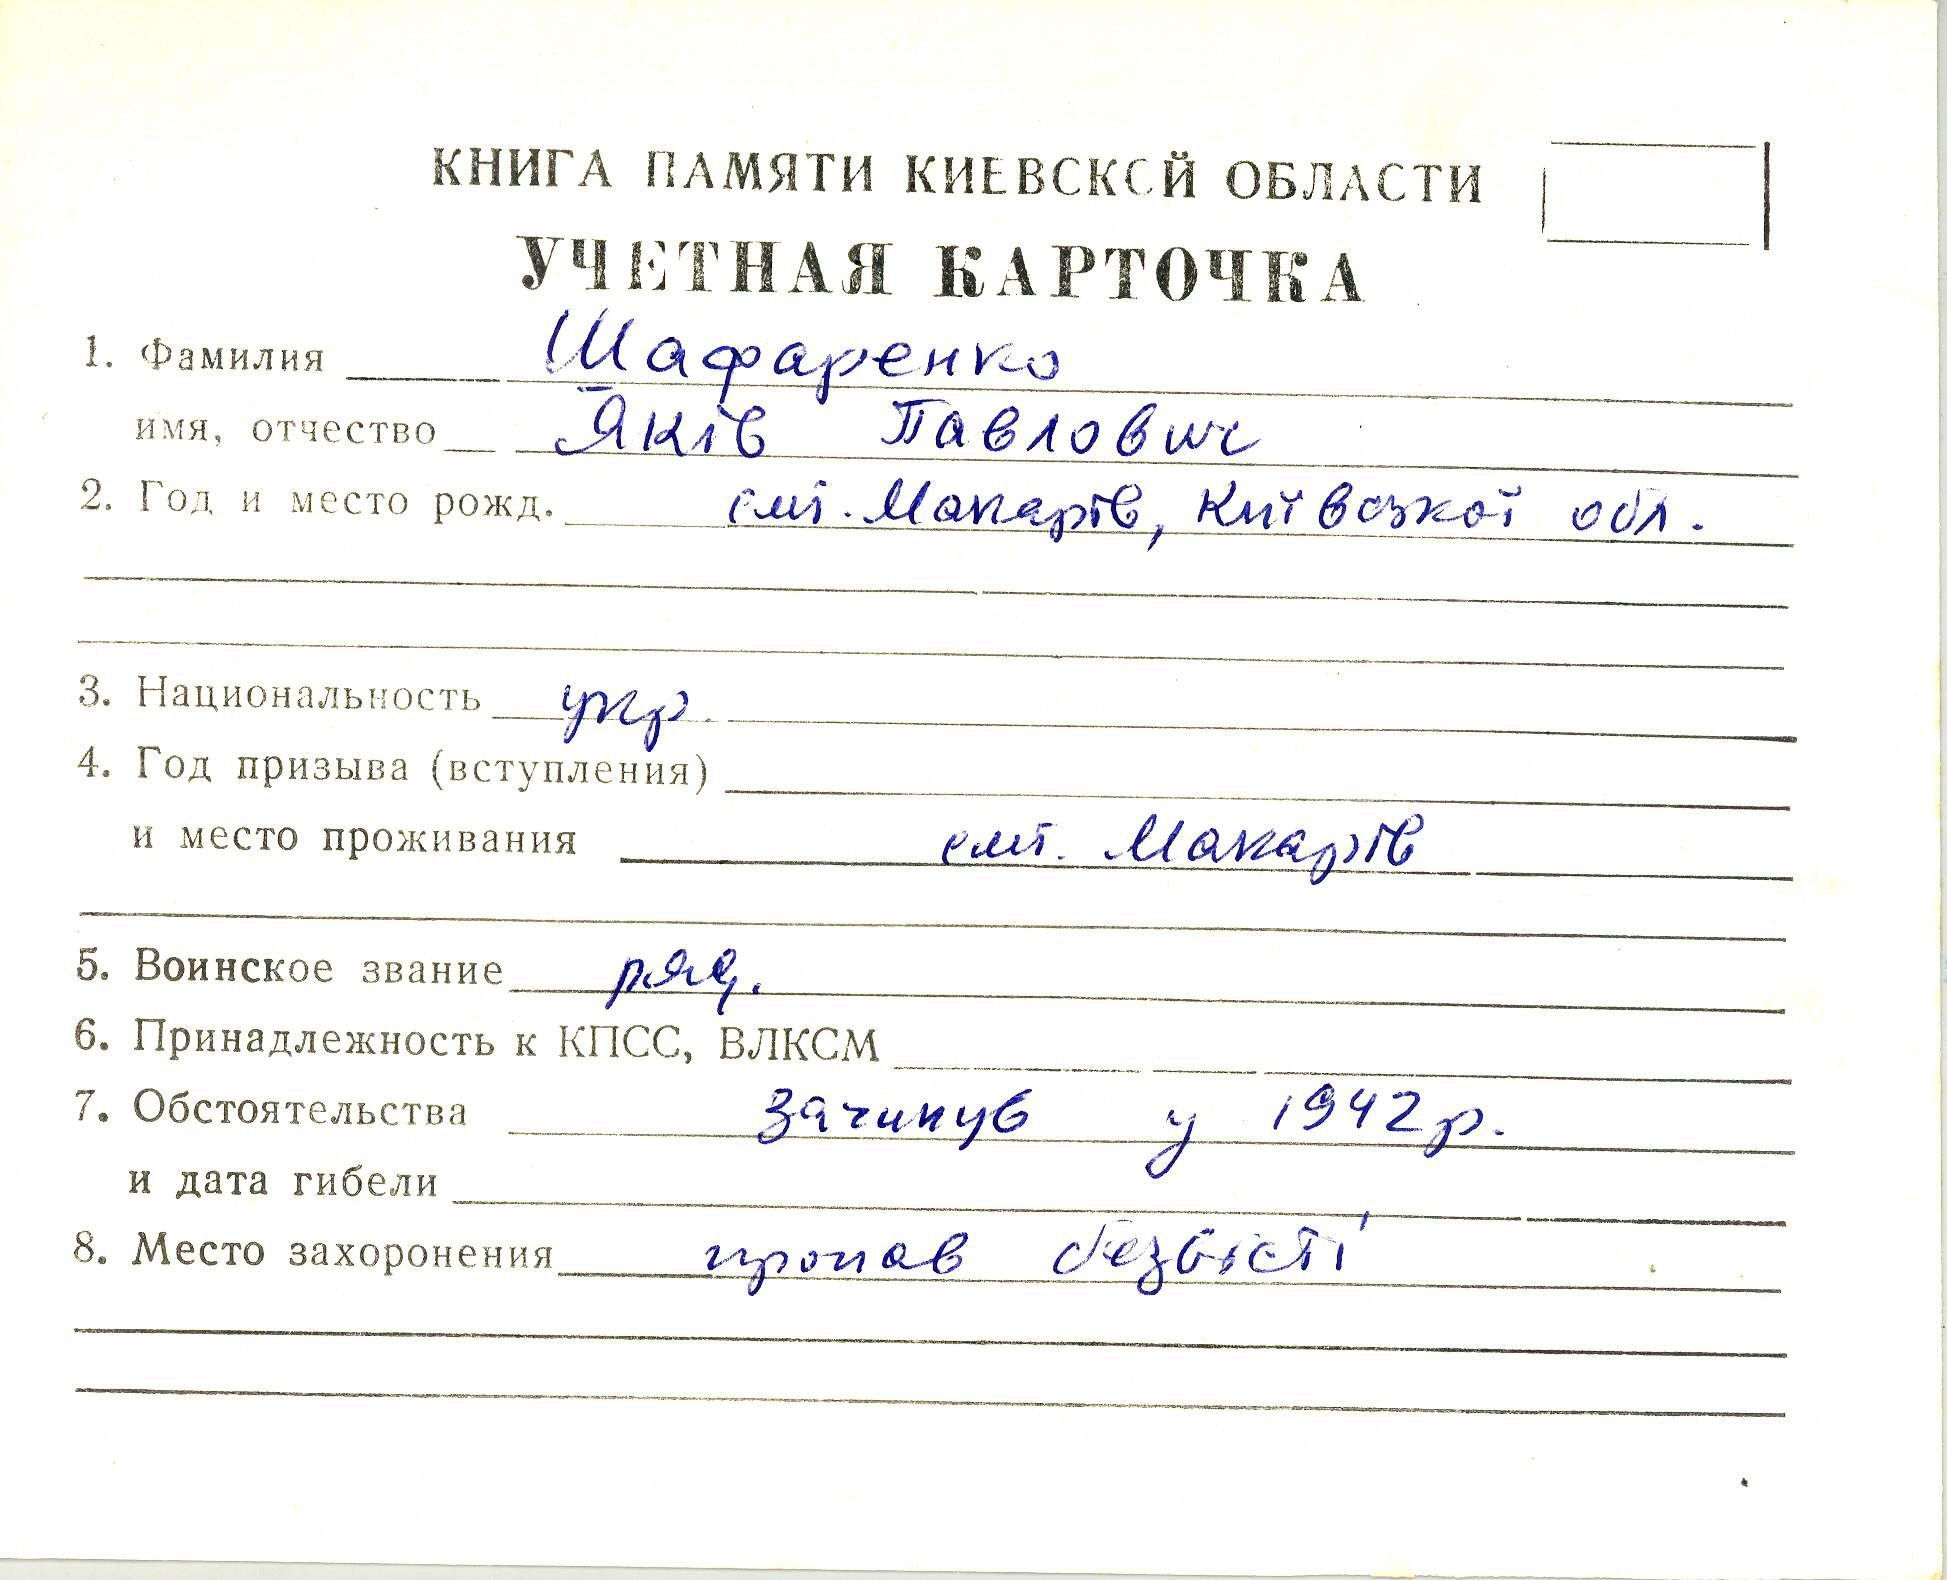 КНИГА ПАМЯТИ КИЕВСКОЙ ОБЛАСТИ
УЧЕТНАЯ КАРТОЧКА
1. Фамилия Шафаренко
имя, отчество Яків Павлович
2. Год и место рожд. смт. Макарів, Київської обл.
3. Национальность укр.
4. Год призыва (вступления)
и место проживания смт. Макарів
5. Воинское звание ряд.
6. Принадлежность к КПСС, ВЛКСМ
7. Обстоятельства загинув у 1942 р.
и дата гибели
8. Место захоронения пропав безвісті